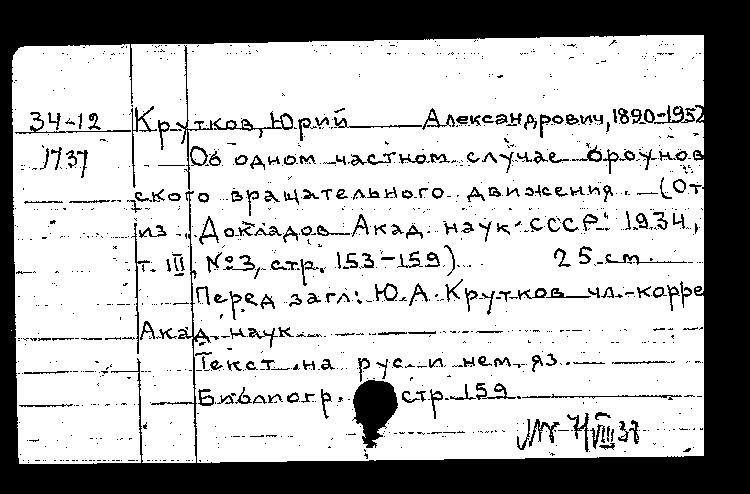 34-12 Крутков, Юрий Александрович, 1890-1952
1737 Об одном частном случае броунов
ского вращательного движения. (От
из „Докладов Акад. наук СССР" 1934,
т. III, №3, стр. 153-159) 25 cm.
Перед загл: Ю.А. Крутков чл.-корре
Акад. наук
Текст на рус. и нем. яз.
Библиогр. стр. 159
VIII 37